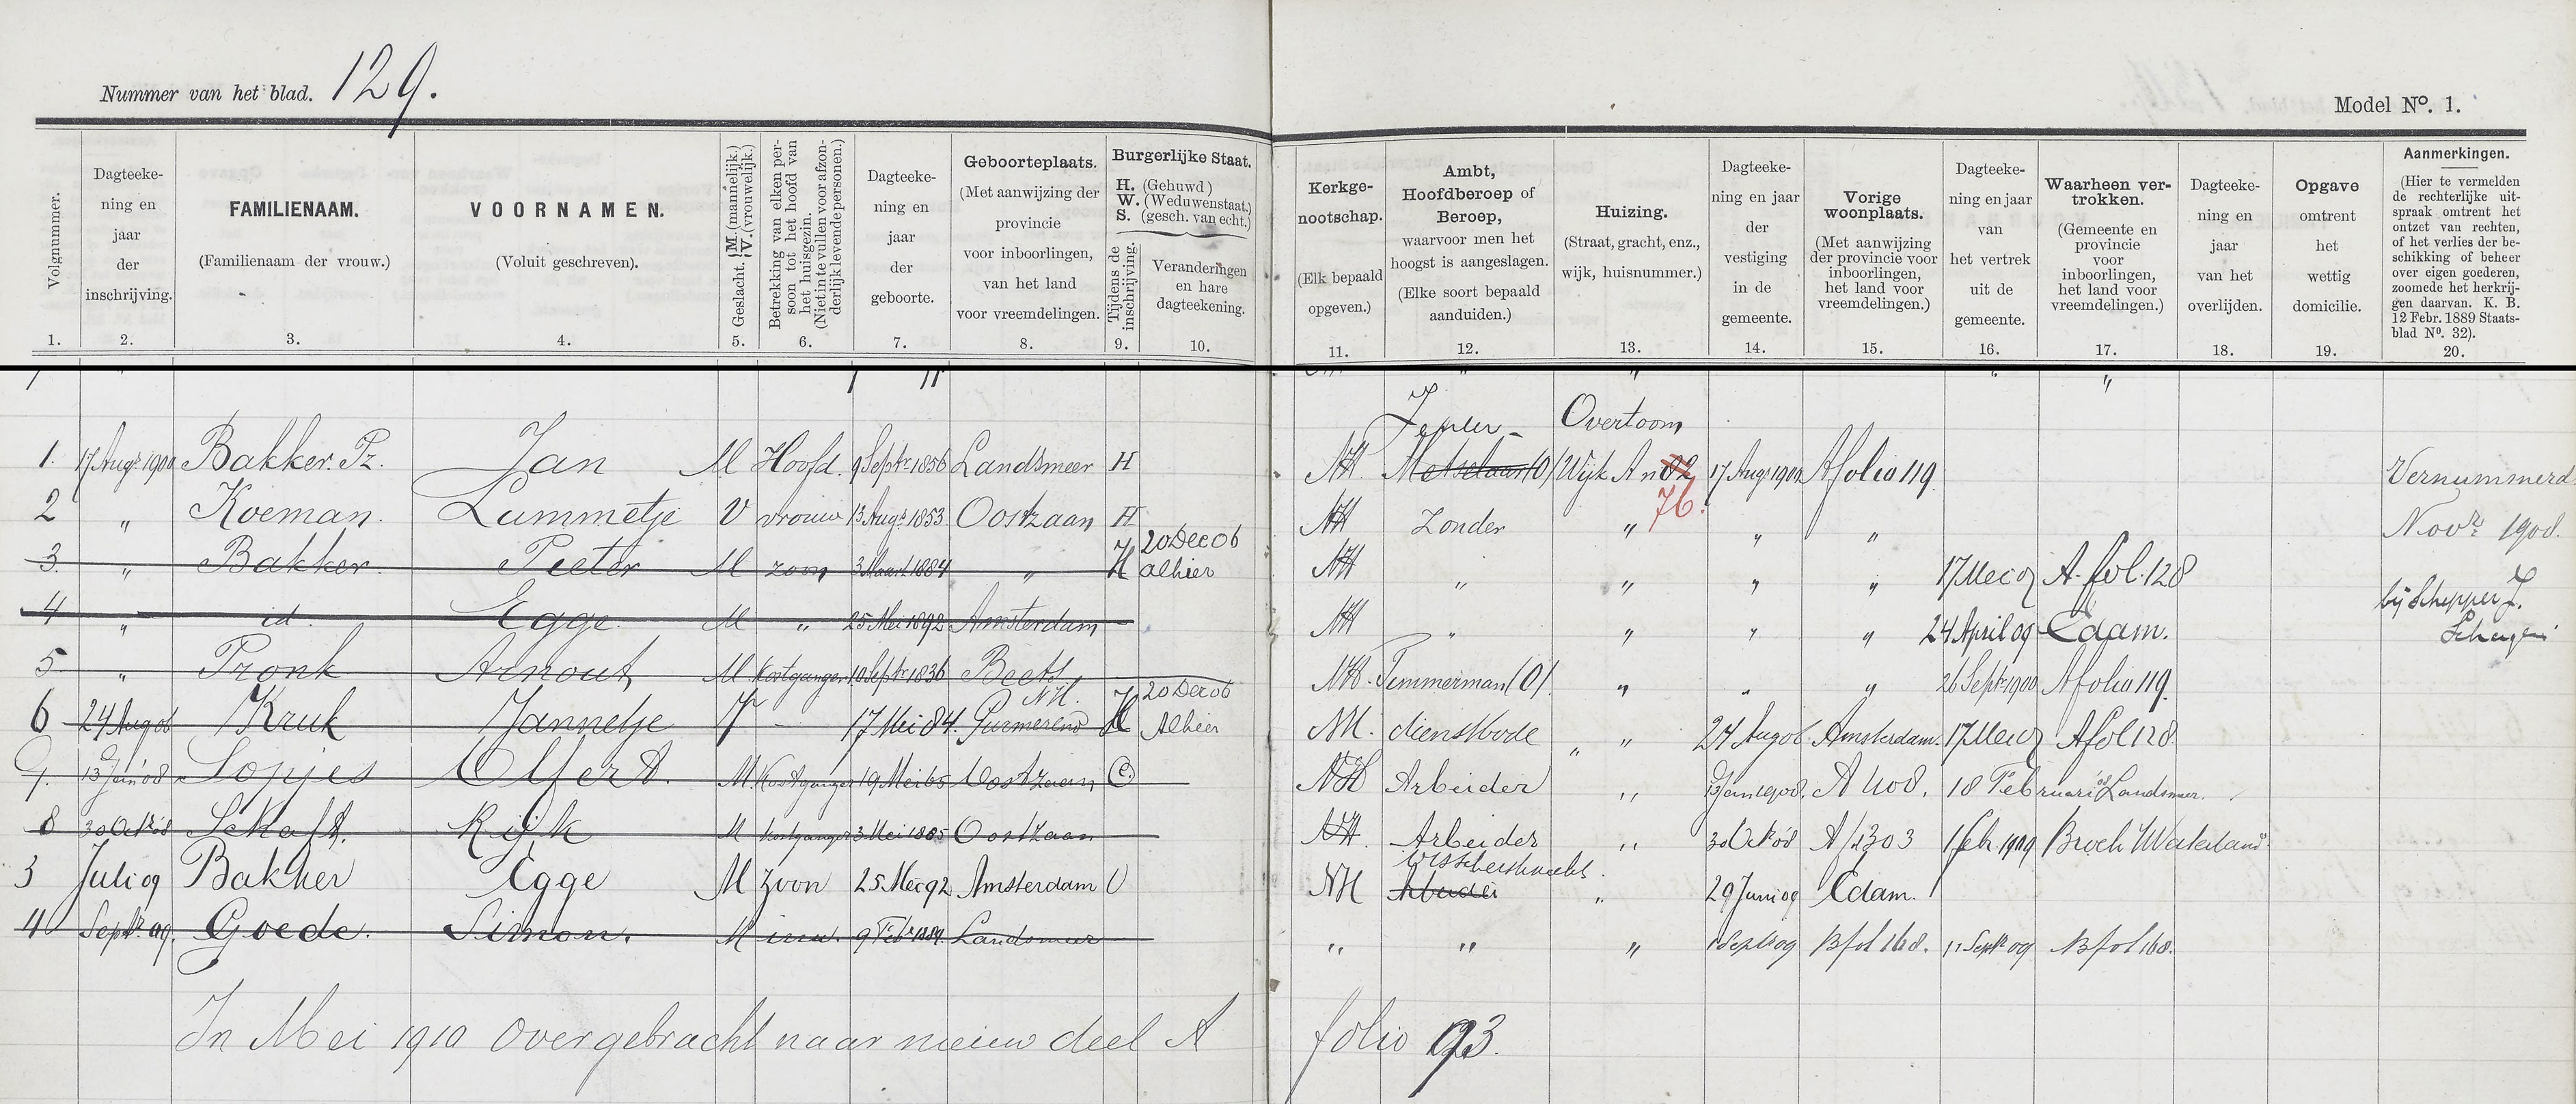 Nummer van het blad. 129.
Model No. 1.
Volgnummer.
1.
Dagteeke-
ning en
jaar
der
inschrijving.
2.
FAMILIENAAM.
(Familienaam der vrouw.)
3.
VOORNAMEN.
(Voluit geschreven).
4.
Geslacht. M. (mannelijk.) V. (vrouwelijk.)
5.
Betrekking van elken per-
soon tot het hoofd van
het huisgezin.
(Niet in te vullen voor afzon-
derlijk levende personen.)
6.
Dagteeke-
ning en
jaar
der
geboorte.
7.
Geboorteplaats.
(Met aanwijzing der
provincie
voor inboorlingen,
van het land
voor vreemdelingen.
8.
Burgerlijke Staat.
H. (Gehuwd)
W. (Weduwenstaat.)
S. (gesch. van echt.)
Tijdens de
inschrijving.
9.
Veranderingen
en hare
dagteekening.
10.
Kerkge-
nootschap.
(Elk bepaald
opgeven.)
11.
Ambt,
Hoofdberoep of
Beroep,
waarvoor men het
hoogst is aangeslagen.
(Elke soort bepaald
aanduiden.)
12.
Huizing.
(Straat, gracht, enz.,
wijk, huisnummer.)
13.
Dagteeke-
ning en jaar
der
vestiging
in de
gemeente.
14.
Vorige
woonplaats.
(Met aanwijzing
der provincie voor
inboorlingen,
het land voor
vreemdelingen.)
15.
Dagteeke-
ning en jaar
van
het vertrek
uit de
gemeente.
16.
Waarheen ver-
trokken.
(Gemeente en
provincie
voor
inboorlingen,
het land voor
vreemdelingen.)
17.
Dagteeke-
ning en
jaar
van het
overlijden.
18.
Opgave
omtrent
het
wettig
domicilie.
19.
Aanmerkingen.
(Hier te vermelden
de rechterlijke uit-
spraak omtrent het
ontzet van rechten,
of het verlies der be-
schikking of beheer
over eigen goederen,
zoomede het herkrij-
gen daarvan. K. B.
12 Febr. 1889 Staats-
blad No. 32).
20.
Overtoom
1. 17 Augs 1900 Bakker. Pz. Jan M Hoofd. 9 Septr 1856 Landsmeer H NH. Metselaar (O) Wijk A no 82 17 Augs 1900 A folio 119. Vernummerd
76.
2 " Koeman. Lummetje V vrouw 13 Augs 1853 Oostzaan H NH Zonder " " " Novr 1908.
20 Dec 06
3. " Bakker. Pieter M zoon 3 Maart 1884 " H alhier NH " " " " 17 Mei 07 A. fol. 128
4 " id. Egge. M " 25 Mei 1892 Amsterdam NH " " " " 24 April 09 Edam. bij Schipper J.
5 " Pronk Arnout M Kostganger 10 Septr 1836 Beets NH. Timmerman (O) " " " 26 Septr 1900 A folio 119.
NH. 20 Dec 06
6 24 Aug 06 Kruk Jannetje V - 17 Mei 84. Purmerend H Alhier NH. dienstbode " " 24 Aug 06 Amsterdam. 17 Mei 07 A fol 128.
7. 13 Jan '08 Lopjes Olfert. M. Kostganger 19 Mei 65 Oostzaan NH Arbeider " 13 Jan 1908. 18 Februari 08 Landsmeer.
8 30 Oktr 08 Schaft. Rijk M Kostganger 3 Mei 1885 Oostzaan NH. Arbeider " 30 Oktr 08 1 Feb. 1909 Broek i/Waterland
Visschersknecht
3 Juli 09 Bakker Egge M zoon 25 Mei 92 Amsterdam O NH Arbeider " 29 Juni 09 Edam.
4 Septr 09. Goede. Simon. M inw. 9 Febr 1884. Landsmeer " " " 1 Septr 09 B fol 168. 11 Septr 09 B fol 168.
In Mei 1910 Overgebracht naar nieuw deel A folio 93.